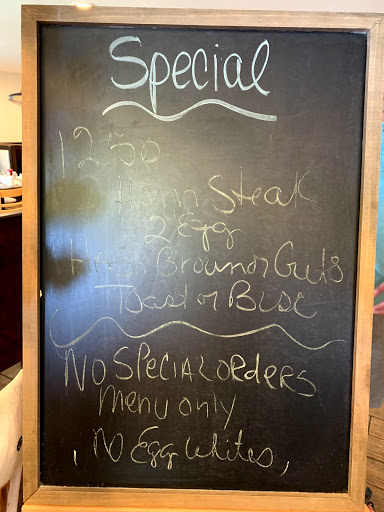 Special
1250
Ham Steak
2 Egg
Hash Brown or Guts
Toast or Bisc
NO SPECIAL ORDERS
Menu only
NO Egg Whites